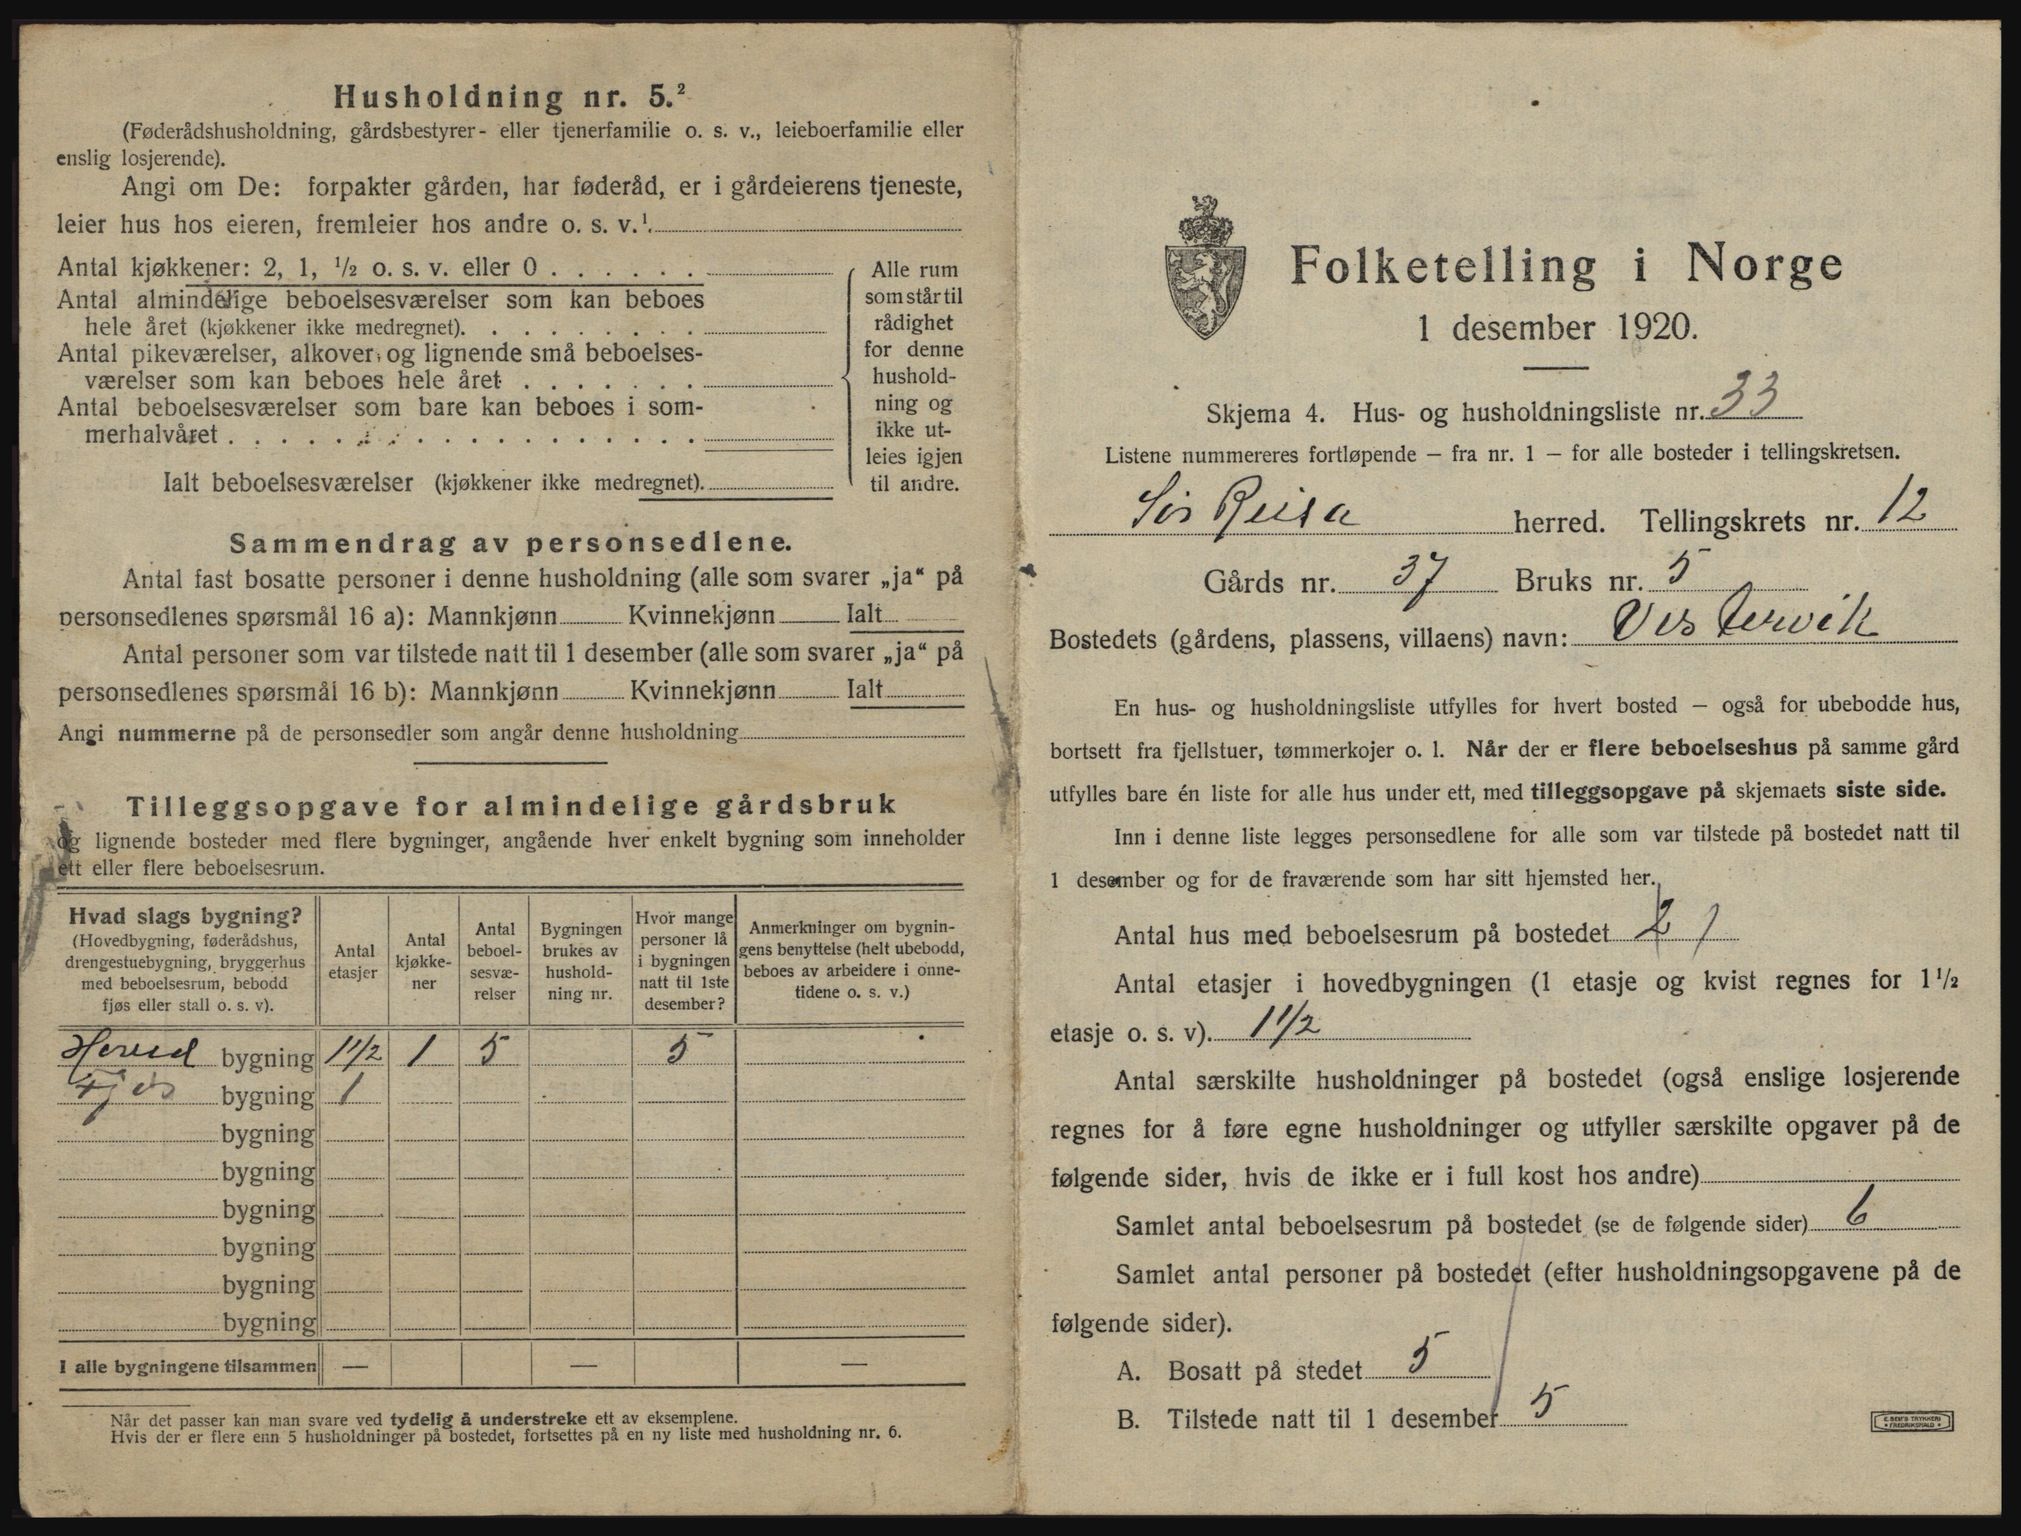 Husholdning nr. 5.²
(Føderådshusholdning, gårdsbestyrer- eller tjenerfamilie o. s. v., leieboerfamilie eller
enslig losjerende).
Angi om De: forpakter gården, har føderåd, er i gårdeierens tjeneste,
leier hus hos eieren, fremleier hos andre o. s. v.¹
Antal kjøkkener: 2, 1, ½ o. s. v. eller 0 . . . . . .
Antal almindelige beboelsesværelser som kan beboes
hele året (kjøkkener ikke medregnet). . . . . . . . .
Antal pikeværelser, alkover og lignende små beboelses-
værelser som kan beboes hele året . . . . . . .
Antal beboelsesværelser som bare kan beboes i som-
merhalvåret . . . . . . . . . . . . . . . . . .
Ialt beboelsesværelser (kjøkkener ikke medregnet).
Alle rum
som står til
rådighet
for denne
hushold-
ning og
ikke ut-
leies igjen
til andre.
Sammendrag av personsedlene.
Antal fast bosatte personer i denne husholdning (alle som svarer „ja“ på
personsedlenes spørsmål 16 a): Mannkjønn Kvinnekjønn Ialt
Antal personer som var tilstede natt til 1 desember (alle som svarer „ja“ på
personsedlenes spørsmål 16 b): Mannkjønn Kvinnekjønn Ialt
Angi nummerne på de personsedler som angår denne husholdning
Tilleggsopgave for almindelige gårdsbruk
og lignende bosteder med flere bygninger, angående hver enkelt bygning som inneholder
ett eller flere beboelsesrum.
Hvad slags bygning?
(Hovedbygning, føderådshus,
drengestuebygning, bryggerhus
med beboelsesrum, bebodd
fjøs eller stall o. s. v).
Antal
etasjer
Antal
kjøkke-
ner
Antal
beboel-
sesvæ-
relser
Bygningen
brukes av
hushold-
ning nr.
Hvor mange
personer lå
i bygningen
natt til 1ste
desember?
Anmerkninger om bygnin-
gens benyttelse (helt ubebodd,
beboes av arbeidere i onne-
tidene o. s. v.)
Hoved bygning 1½ 1 5 5
Fjøs bygning 1
bygning
bygning
bygning
bygning
bygning
bygning
I alle bygningene tilsammen — — —
Når det passer kan man svare ved tydelig å understreke ett av eksemplene.
Hvis der er flere enn 5 husholdninger på bostedet, fortsettes på en ny liste med husholdning nr. 6.
Folketelling i Norge
1 desember 1920.
Skjema 4. Hus- og husholdningsliste nr. 33
Listene nummereres fortløpende – fra nr. 1 – for alle bosteder i tellingskretsen.
Sör Reisa herred. Tellingskrets nr. 12
Gårds nr. 37 Bruks nr. 5
Bostedets (gårdens, plassens, villaens) navn: Vestervik
En hus- og husholdningsliste utfylles for hvert bosted – også for ubebodde hus,
bortsett fra fjellstuer, tømmerkojer o. l. Når der er flere beboelseshus på samme gård
utfylles bare én liste for alle hus under ett, med tilleggsopgave på skjemaets siste side.
Inn i denne liste legges personsedlene for alle som var tilstede på bostedet natt til
1 desember og for de fraværende som har sitt hjemsted her.
Antal hus med beboelsesrum på bostedet 2 1
Antal etasjer i hovedbygningen (1 etasje og kvist regnes for 1½
etasje o. s. v). 1½
Antal særskilte husholdninger på bostedet (også enslige losjerende
regnes for å føre egne husholdninger og utfyller særskilte opgaver på de
følgende sider, hvis de ikke er i full kost hos andre)
Samlet antal beboelsesrum på bostedet (se de følgende sider) 6
Samlet antal personer på bostedet (efter husholdningsopgavene på de
følgende sider).
A. Bosatt på stedet 5
B. Tilstede natt til 1 desember 5
E. SEM'S TRYKKERI
FREDRIKSHALD